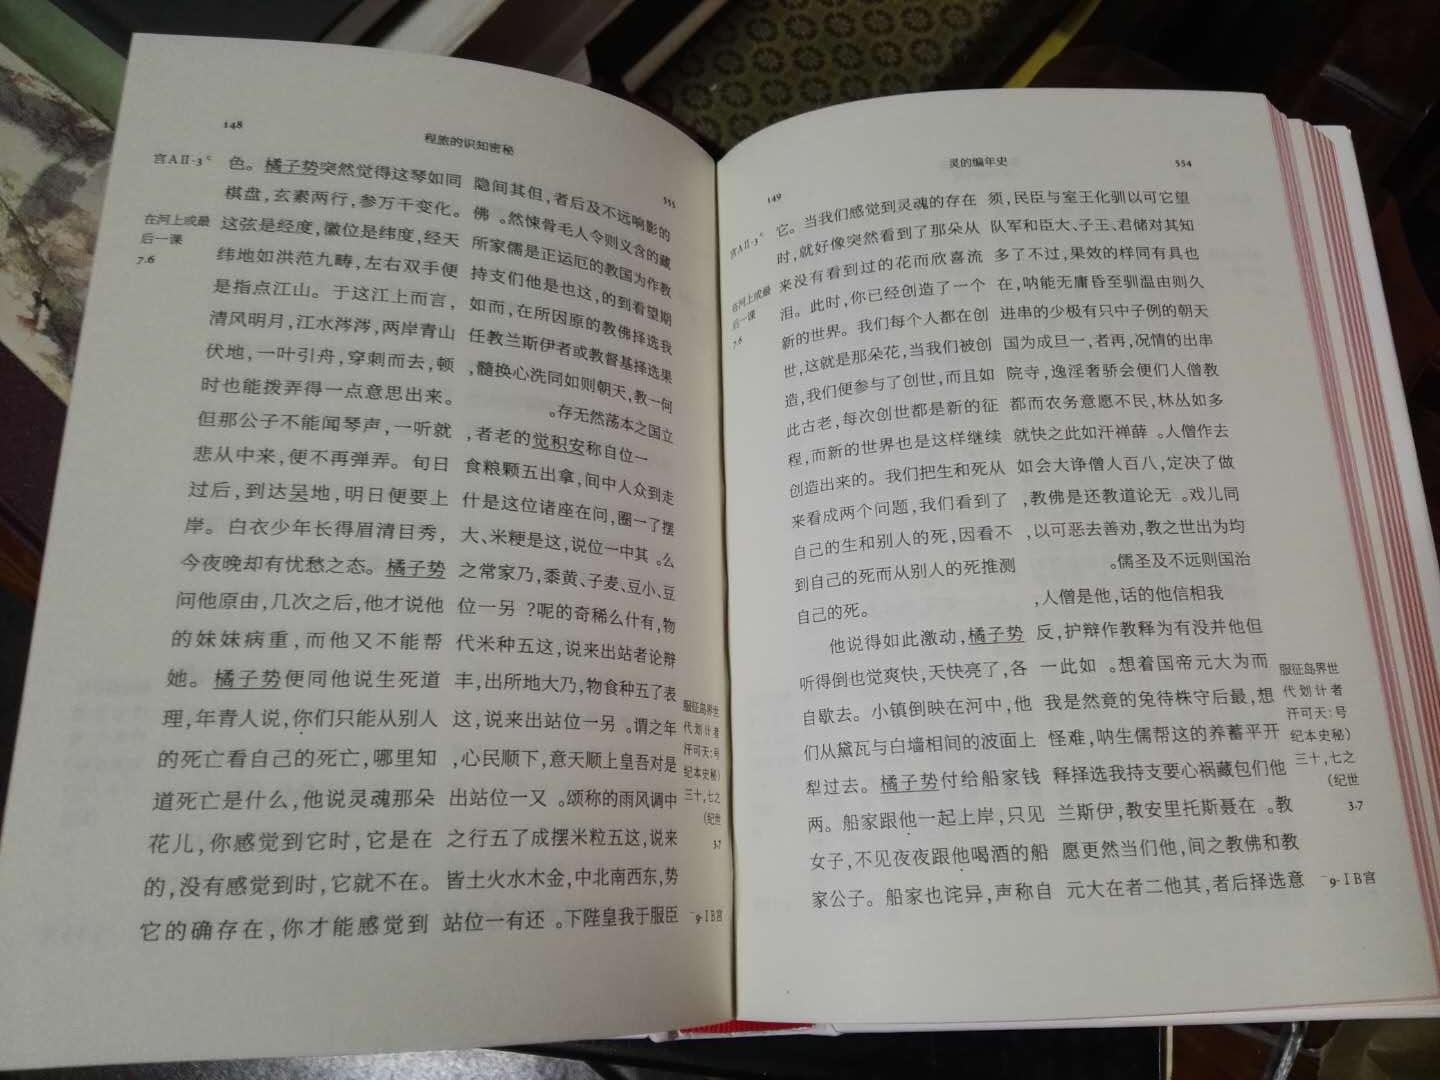 148
秘密知识的旅程
555
宫AⅡ-3c
在河上或最
后一课
7.6
色。橘子势突然觉得这琴如同
棋盘,玄素两行,参万千变化。
这弦是经度,徽位是纬度,经天
纬地如洪范九畴,左右双手便
是指点江山。于这江上而言,
清风明月,江水涔涔,两岸青山
伏地,一叶引舟,穿刺而去,顿
时也能拨弄得一点意思出来。
但那公子不能闻琴声,一听就
悲从中来,便不再弹弄。旬日
过后,到达吴地,明日便要上
岸。白衣少年长得眉清目秀,
今夜晚却有忧愁之态。橘子势
问他原由,几次之后,他才说他
的妹妹病重,而他又不能帮
她。橘子势便同他说生死道
理,年青人说,你们只能从别人
的死亡看自己的死亡,哪里知
道死亡是什么,他说灵魂那朵
花儿,你感觉到它时,它是在
的,没有感觉到时,它就不在。
它的确存在,你才能感觉到
的影响远不及后者,但其间隐
藏的含义则令人毛骨悚然。佛
教作为国教的厄运正是儒家所
期望看到的,这也是他们支持
我选择佛教的原因所在,而如
果选择基督教或者伊斯兰教任
何一教,天朝则如同洗心换髓,
立国之本荡然无存。
一位自称安积觉的老者,
走到众人中间,拿出五颗粮食
摆了一圈,问在座诸位这是什
么。其中一位说,这是粳米、大
豆、小豆、麦子、黄黍,乃家常之
物,有什么稀奇的呢?另一位
辩论者站出来说,这五种米代
表了五种食物,乃大地所出,丰
年之谓。另一位站出来说,这
是对吾皇上顺天意,下顺民心,
调中雨风的称颂。又一位站出
来说,这五粒米摆成了五行之
势,东西南北中,金木水火土皆
臣服于我皇陛下。还有一位站
世界岛征服
者计划代
号:天可汗
(秘史本纪
之七,十三
世纪)
3.7
宫B I-9
149
灵的编年史
554
宫AⅡ-3c
在河上或最
后一课
7.6
它。当我们感觉到灵魂的存在
时,就好像突然看到了那朵从
来没有看到过的花而欣喜流
泪。此时,你已经创造了一个
新的世界。我们每个人都在创
世,这就是那朵花,当我们被创
造,我们便参与了创世,而且如
此古老,每次创世都是新的征
程,而新的世界也是这样继续
创造出来的。我们把生和死从
来看成两个问题,我们看到了
自己的生和别人的死,因看不
到自己的死而从别人的死推测
自己的死。
他说得如此激动,橘子势
听得倒也觉爽快,天快亮了,各
自歇去。小镇倒映在河中,他
们从黛瓦与白墙相间的波面上
犁过去。橘子势付给船家钱
两。船家跟他一起上岸,只见
女子,不见夜夜跟他喝酒的船
家公子。船家也诧异,声称自
望它可以驯化王室与臣民,须
知其对储君、王子、大臣和军队
也具有同样的效果,不过了多
久则由温驯至昏庸无能,呐在
天朝的例子中只有极少的串进
串出的情况,再者,一旦成为国
教僧人们便会骄奢淫逸,寺院
多如丛林,民不愿意务农而都
去作僧人。薛禅汗如此之快就
做了决定,八百僧人诤大会如
同儿戏。无论道教还是佛教,
均为出世之教,劝善去恶可以,
治国则远不及圣儒。
我相信他的话,他是僧人,
但他并没有为释教作辩护,反
而为大元帝国着想。如此一
想,最后守株待兔的竟然是我
开平畜养的这帮儒生呐,难怪
他们包藏祸心要支持我选择释
教。在聂斯托里安教,伊斯兰
教和佛教之间,他们当然更愿
意选择后者,其他二者在大元
世界岛征服
者计划代
号:天可汗
(秘史本纪
之七,十三
世纪)
3.7
宫B I-9